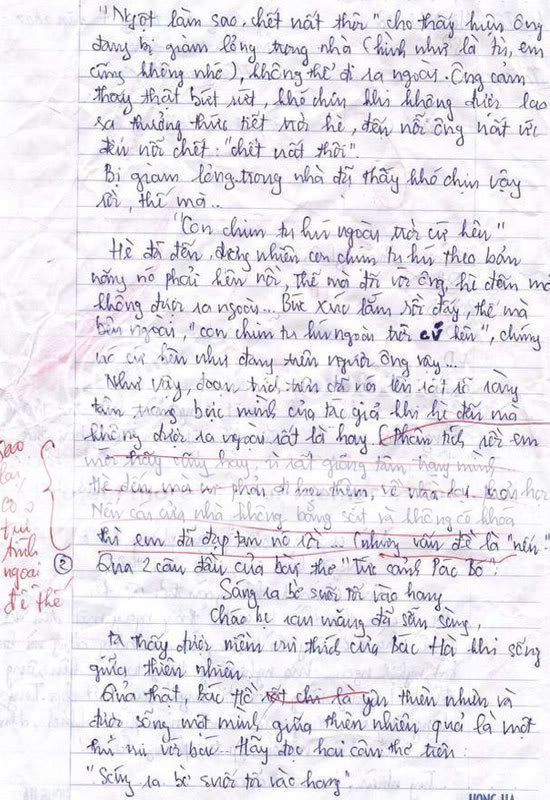 "Ngột làm sao, chết uất thôi" cho thấy hiện ông
đang bị giam lỏng trong nhà (hình như là tù, em
cũng không nhớ), không thể đi ra ngoài. Ông cảm
thấy thật bứt rứt, khó chịu khi không được lao
ra thưởng thức tiết trời hè, đến nỗi ông uất ức
đến nỗi chết. "chết uất thôi".
Bị giam lỏng trong nhà đã thấy khó chịu vậy
rồi, thế mà..
"Con chim tu hú ngoài trời cứ kêu"
Hè đã đến, đương nhiên con chim tu hú theo bản
năng nó phải kêu rồi, thế mà đối với ông, hè đến mà
không được ra ngoài... Bức xúc lắm rồi đấy, thế mà
bên ngoài, "con chim tu hú ngoài trời cứ kêu", chúng
nó cứ kêu như đang trêu người ông vậy...
Như vậy, đoạn trích trên đã nói lên rất rõ ràng
tâm trạng bực mình của tác giả khi hè đến mà
không được ra ngoài rất là hay. (Phân tích rồi em
mới thấy cũng hay, vì rất giống tâm trạng mình
Hè đến, mà cứ phải đi học thêm, về nhà lại phải học
Nếu cái cửa nhà không bằng sắt và không có khóa
thì em đã đạp tan nó rồi... (nhưng vấn đề là "nếu"
sao
lại
có
tui
tình
ngoài
đề thế
② Qua 2 câu đầu của bài thơ "Tức cảnh Pác Bó":
Sáng ra bờ suối tối vào hang
Cháo bẹ rau măng đã sẵn sàng,
ta thấy được niềm vui thích của Bác Hồ khi sống
giữa thiên nhiên.
Quả thật, Bác Hồ rất chi là yêu thiên nhiên và
được sống một mình giữa thiên nhiên quả là một
thú vị với bác. Hãy đọc hai câu thơ trên:
"Sáng ra bờ suối tối vào hang"
HONG HA